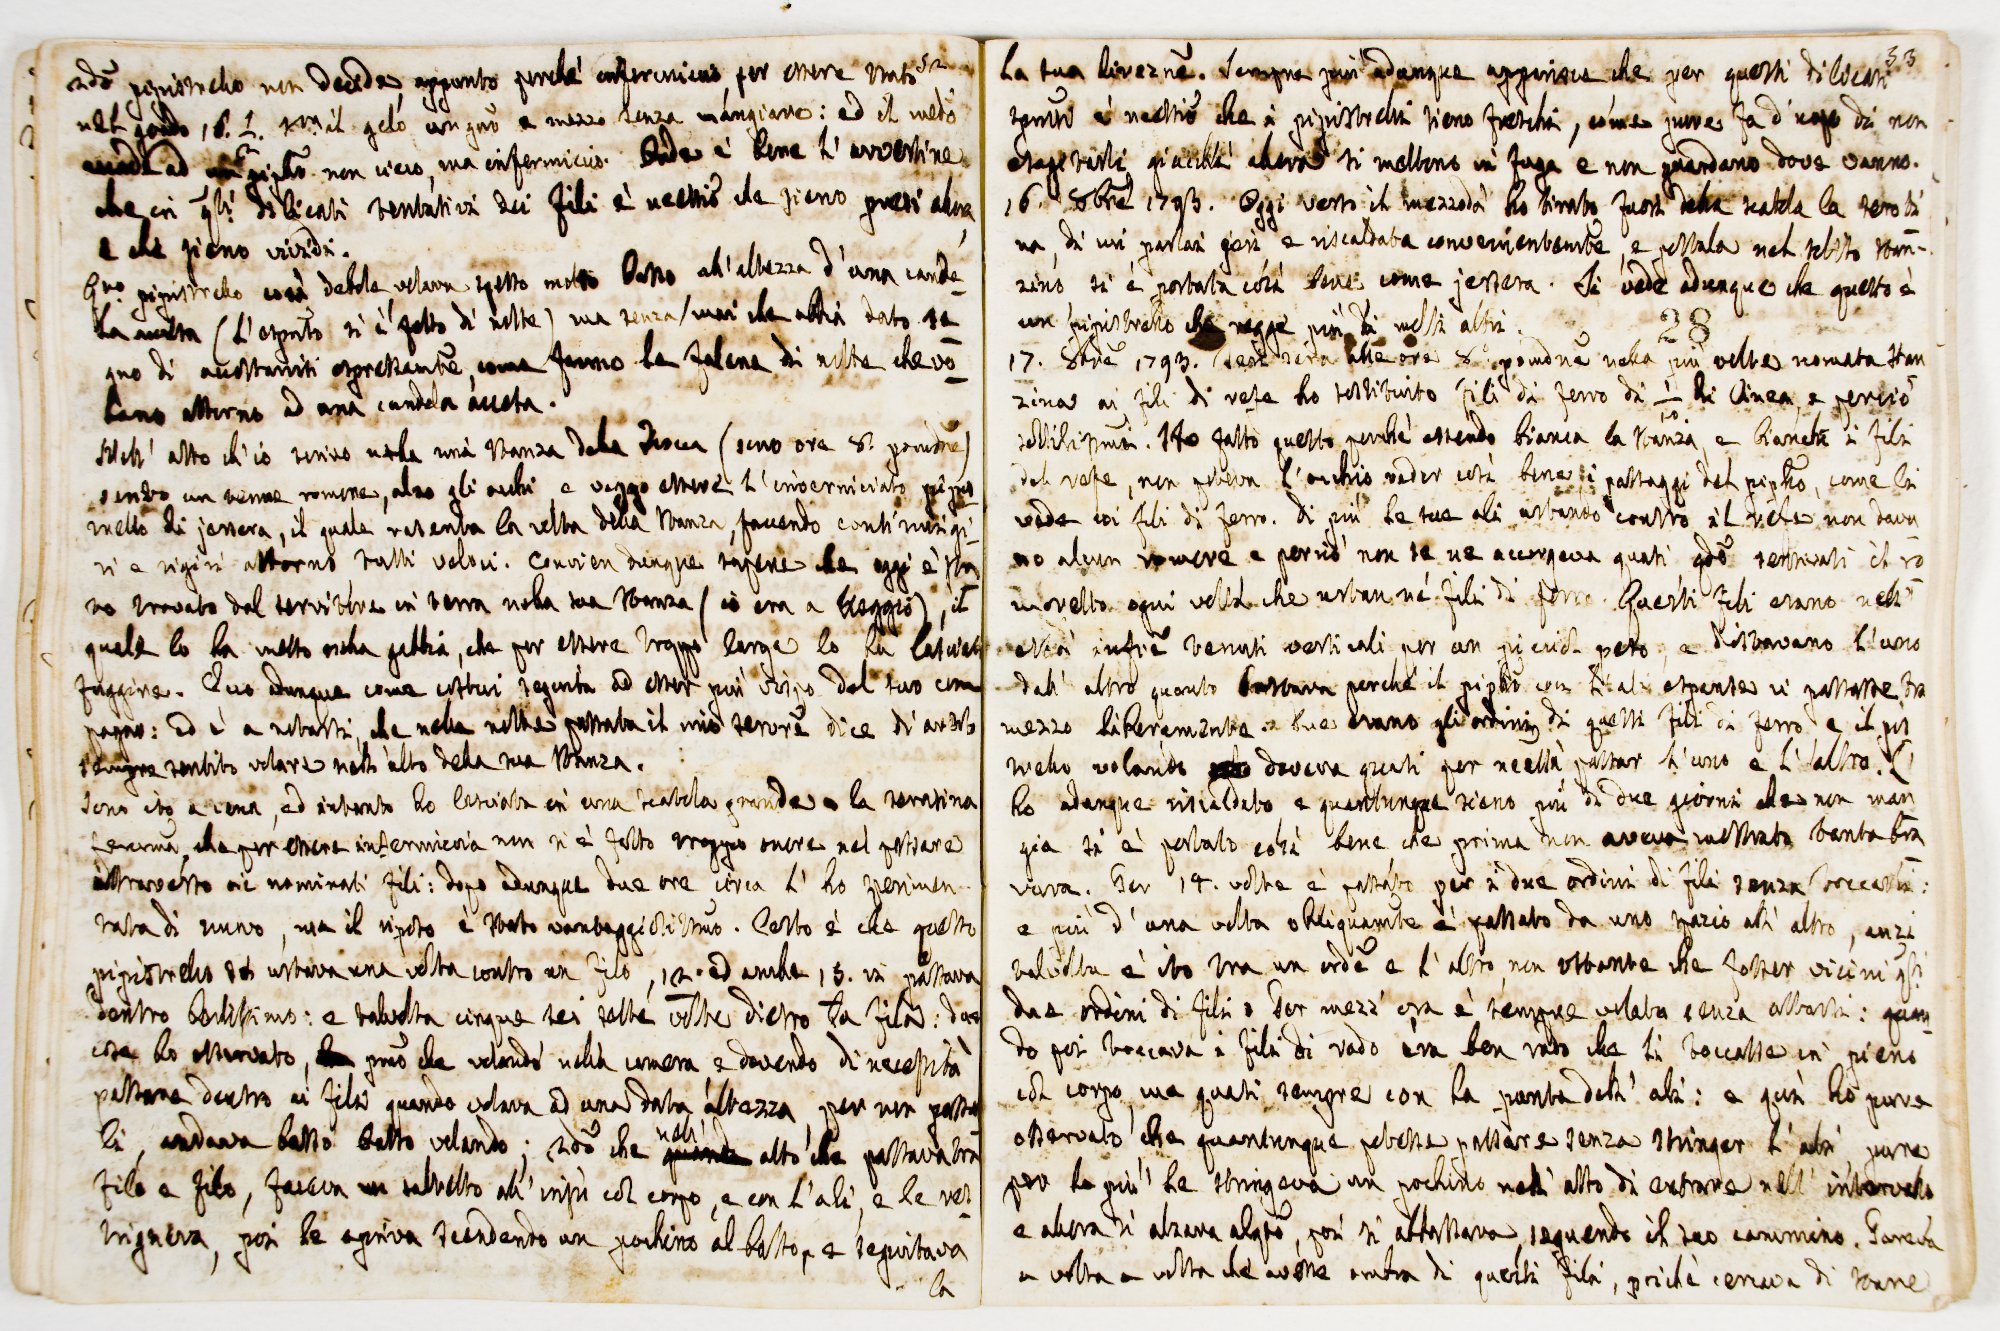 52
pipistrello non decide, appunto perché infermiccio, per essere stato
nel gelo un gno e mezzo senza mangiare: ed il medo
non cieco, ma infermiccio. Onde è bene l'avvertire
che in qsti dilicati tentativi dei fili è necessio che sieno presi allora,
e che sieno vividi.
pipistrello così debole volava spesso molto basso all'altezza d'una cande-
la accesa (l'espmto si è fatto di notte) ma senza mai che abbia dato se
gno di accostarvisi espressamte, come fanno le falene di notte che vo-
lano attorno ad una candela accesa.
Nell'atto ch'io scrivo nella mia stanza della Rocca (sono ore 8. pomdne)
sento un tenue romore, alzo gli occhi, e veggo essere l'inverniciato pipis-
trello di jersera, il quale rasenta la volta della stanza, facendo continui gi-
ri e rigiri attorno tutti veloci. Convien dunque sapere che oggi è sta
to trovato dal servitore in terra nella sua stanza (io era a Reggio), il
quale lo ha messo nella gabbia, che per essere troppo larga lo ha lasciato
fuggire. Ecco adunque come costui seguita ad esser più vispo del suo com
pagno: ed è a notarsi, che nella notte passata il mio servre dice di averlo
sempre sentito volare nell'alto della sua stanza.
Sono ito a cena, ed intanto ho lasciata in una scatola grande la serotina
femina, che per essere infermiccia non si è fatto troppo onore nel passare
attraverso ai nominati fili: dopo adunque due ore circa l'ho sperimen-
tata di nuovo, ma il riposo è stato vantaggiosissimo. Certo è che questo
pipistrello urtava una volta contro un filo, 12. ed anche 15. vi passava
dentro benissimo: e talvolta cinque sei sette volte dietro la fila: due
cose ho osservato, pmo che volando nella camera e dovendo di necessità
passare dentro ai fili quando volava ad una data altezza, per non passar
li, andava basso basso volando; 2do che nell' atto che passava tra
filo e filo, faceva un saltetto all'insù col corpo, e con l'ali, e le res-
trigneva, poi le apriva scendendo un pochino al basso, e seguitava
la
53
la sua direzne. Sempre più adunque apparisce che per questi dilicati
spmti è necessio che i pipistrelli sieno freschi, come pure fa d'uopo di non
esasperarli, giacché allora si mettono in fuga e non guardano dove vanno.
16. 8bre 1793. Oggi verso il mezzodì ho tirato fuori della scatola la seroti
na, di cui parlai jeri e riscaldata convenientemte, e postala nel solito stan-
zino si è portata così bene come jersera. Si vede adunque che questo è
un pipistrello che regge più di molti altri.
28
17. 8bre 1793. Jeri sera alle ore 8. pomdne nella più volte nomata stan
zina ai fili di refe ho sostituito fili di ferro di 1/10 di linea, e perciò
sottilissimi. Ho fatto questo perché essendo bianca la stanza, e bianchi i fili
del refe, non poteva l'occhio veder così bene i passaggi del piplto, come li
vede coi fili di ferro. Di più le sue ali urtando contro il refe non dava
no alcun romore e perciò non se ne accorgeva quasi qdo sentivasi il ro
moretto ogni volta che urtan ne' fili di ferro. Questi fili erano nell'
està infre tenuti verticali per un piccol peso, e distavano l'uno
dall'altro quanto bastava perché il piplto con l'ali espanse vi passasse fra
mezzo liberamente. Due erano gli ordini di questi fili di ferro e il pipi
trello volando doveva quasi per necessà passar l'uno e l'altro. L'
ho adunque riscaldato e quantunque sieno più di due giorni che non man
gia si è portato così bene che prima non aveva mostrato tanta bra
vura. Per 14. volte è passato per i due ordini di fili senza toccarli:
e più d'una volta obliquamte è passato da uno spazio all'altro, anzi
talvolta è ito tra un ordne e l'altro non ostante che fosser vicini qsti
due ordini di fili. Per mezz'ora è sempre volato senza arrestarsi: quan-
do poi toccava i fili di rado era ben rado che li toccasse in pieno
col corpo, ma quasi sempre con la punta dell'ali: e qui ho pure
osservato che quantunque potesse passare senza stringer l'ali, pure
per lo più le stringeva un pochino nell'atto di entrare nell'intervallo
e allora si alzava alqto, poi si abbassava, seguendo il suo cammino. Pareva
a volta a volta che avesse ombra di questi fili, poiché cercava di starne